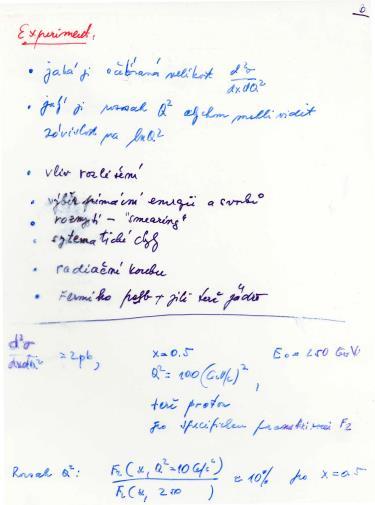 Experiment.
• jaká je očekávaná velikost d²σ/dxdQ²
• jaký je rozsah Q² abychom mohli vidět
závislost na lnQ²
• vliv rozlišení
• výběr primární energie a svazků
• rozmytí – "smearing"
• systematické chyby
• radiační korekce
• Fermiho pohyb + jiné terč jádro
d²σ/dxdQ² = 2pb, x=0.5 E₀=250 GeV
Q²=100(GeV/c)²,
terč proton
pro specifickou parametrizaci F₂
Rozsah Q²: F₂(x, Q²=10 G/c²)/F₂(x, 250 ) ≈ 10% pro x=0.5